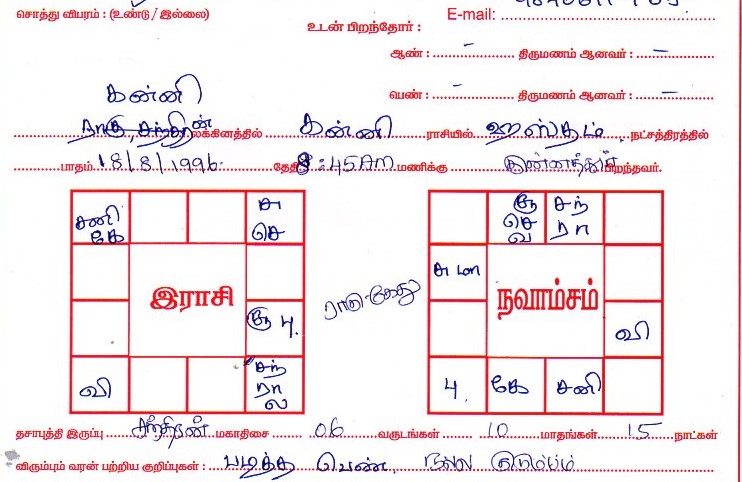 சொத்து விபரம் : (உண்டு / இல்லை)
E-mail:
உடன் பிறந்தோர் :
ஆண் : - திருமணம் ஆனவர் : -
பெண் : - திருமணம் ஆனவர் : -
கன்னி
லக்கினத்தில் கன்னி ராசியில் ஹஸ்தம் நட்சத்திரத்தில்
பாதம் 18/8/1996 தேதி 8:45AM மணிக்கு பிறந்தவர்.
சனி கே
சு செ
சூ பு.
வி
சந் ரா ல
இராசி
ராகு-கேது
சூ செ வ
சந் ரா
சு மா
வி
பு. கே சனி
நவாம்சம்
தசாபுத்தி இருப்பு சந்திரன் மகாதிசை 06 வருடங்கள் 10 மாதங்கள் 15 நாட்கள்
விரும்பும் வரன் பற்றிய குறிப்புகள் : படித்த பெண், நல்ல குடும்பம்